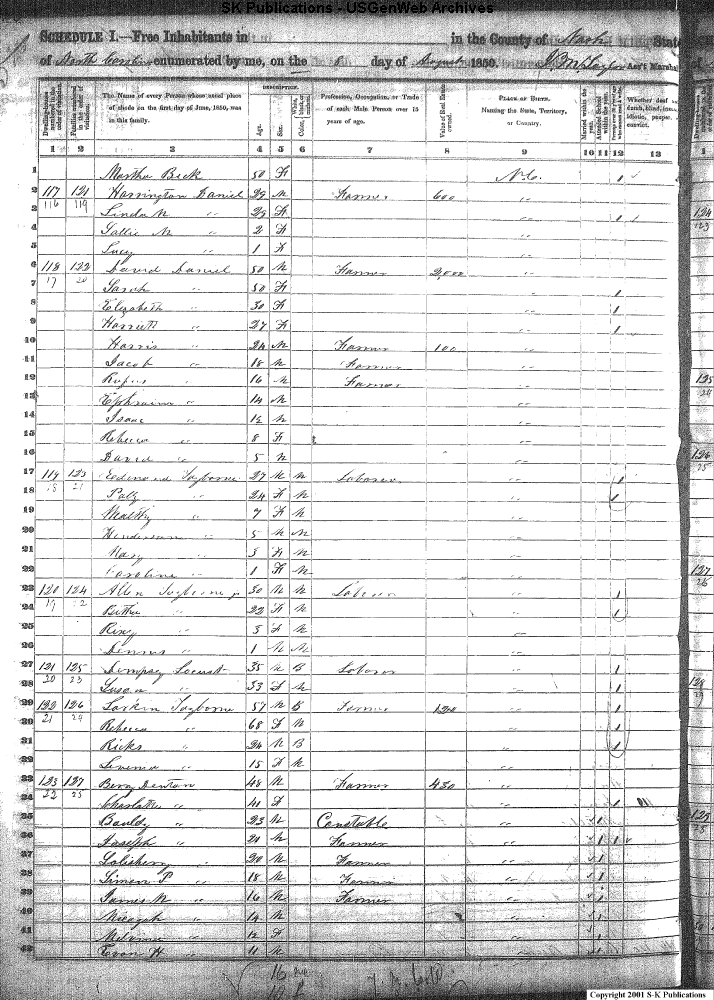 SK Publications - USGenWeb Archives
SCHEDULE I.—Free Inhabitants in in the County of Nash State
of North Carolina enumerated by me, on the 8 day of August 1850. Ass't Marshal
Dwelling-houses numbered in the order of visitation.
Families numbered in the order of visitation.
The Name of every Person whose usual place of abode on the first day of June, 1850, was in this family.
DESCRIPTION.
Age.
Sex.
Color, White, black, or mulatto.
Profession, Occupation, or Trade of each Male Person over 15 years of age.
Value of Real Estate owned.
PLACE OF BIRTH. Naming the State, Territory, or Country.
Married within the year.
Attended School within the year.
Persons over 20 y'rs of age who cannot read & write.
Whether deaf and dumb, blind, insane, idiotic, pauper, or convict.
1 2 3 4 5 6 7 8 9 10 11 12 13
1 Martha Beck 50 F N.C. 1
2 117 121 Harrington Daniel 29 M Farmer 600 "
116 119
3 Linda M " 29 F " 1
4 Sallie M " 2 F "
5 Lucy " 1 F "
6 118 122 David Daniel 50 M Farmer 2,000 "
17 20
7 Sarah " 50 F " 1
8 Elizabeth " 30 F " 1
9 Harriett " 27 F " 1
10 Harris " 24 M Farmer 100 "
11 Jacob " 18 M Farmer "
12 Rufus " 16 M Farmer "
13 Ephraim " 14 M "
14 Isaac " 12 M "
15 Rebecca " 8 F "
16 David " 5 M "
17 119 123 Edmond Taborne 27 M M Laborer " 1
18 21
18 24 F M " 1
19 7 F M "
20 Henderson " 5 M M "
21 Mary " 3 F M "
22 Caroline " 1 F M "
23 120 124 Allen Taborne 30 M M Laborer " 1
19
24 22 F M " 1
25 3 F M "
26 Dennis " 1 M M "
27 121 125 Dempsey Locust 35 M B Laborer " 1
20 23
28 Susan " 33 F M " 1
29 122 126 Larkin Taborne 57 M B Farmer 120 " 1
21 24
30 Rebecca " 68 F M " 1
31 Ricks " 24 M B " 1
32 15 F M "
33 123 127 Berry Denton 48 M Farmer 430 "
22 25
34 Charlotte " 41 F " 1
35 23 M Constable " 1
36 Joseph " 21 M Farmer " 1 1
37 20 M Farmer " 1
38 Simon P " 18 M Farmer " 1
39 James M " 16 M Farmer " 1
40 Micajah " 14 M " 1
41 12 F " 1
42 11 M " 1
16
Copyright 2001 S-K Publications